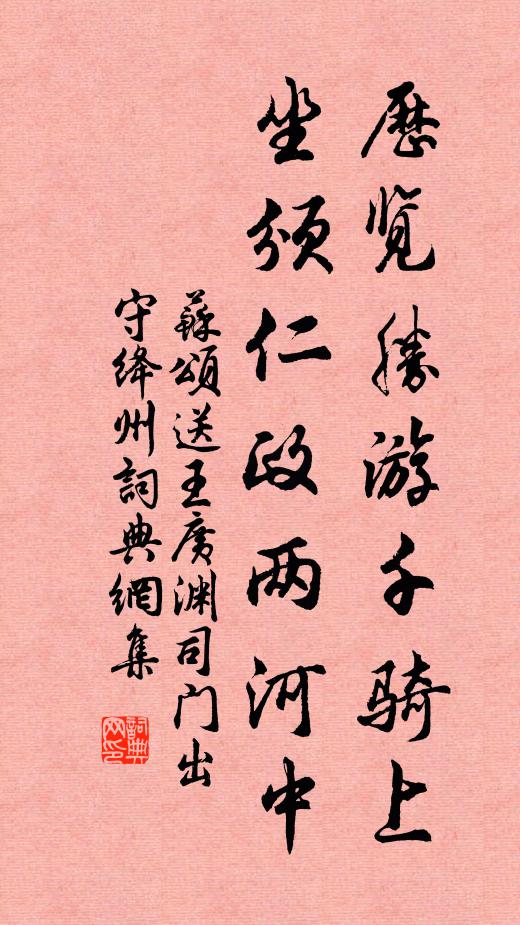 歷覽勝游千騎上
坐頒仁政两河中
蘇頌送王廣渊司门出
守绛州詞典網集
詞典
网印